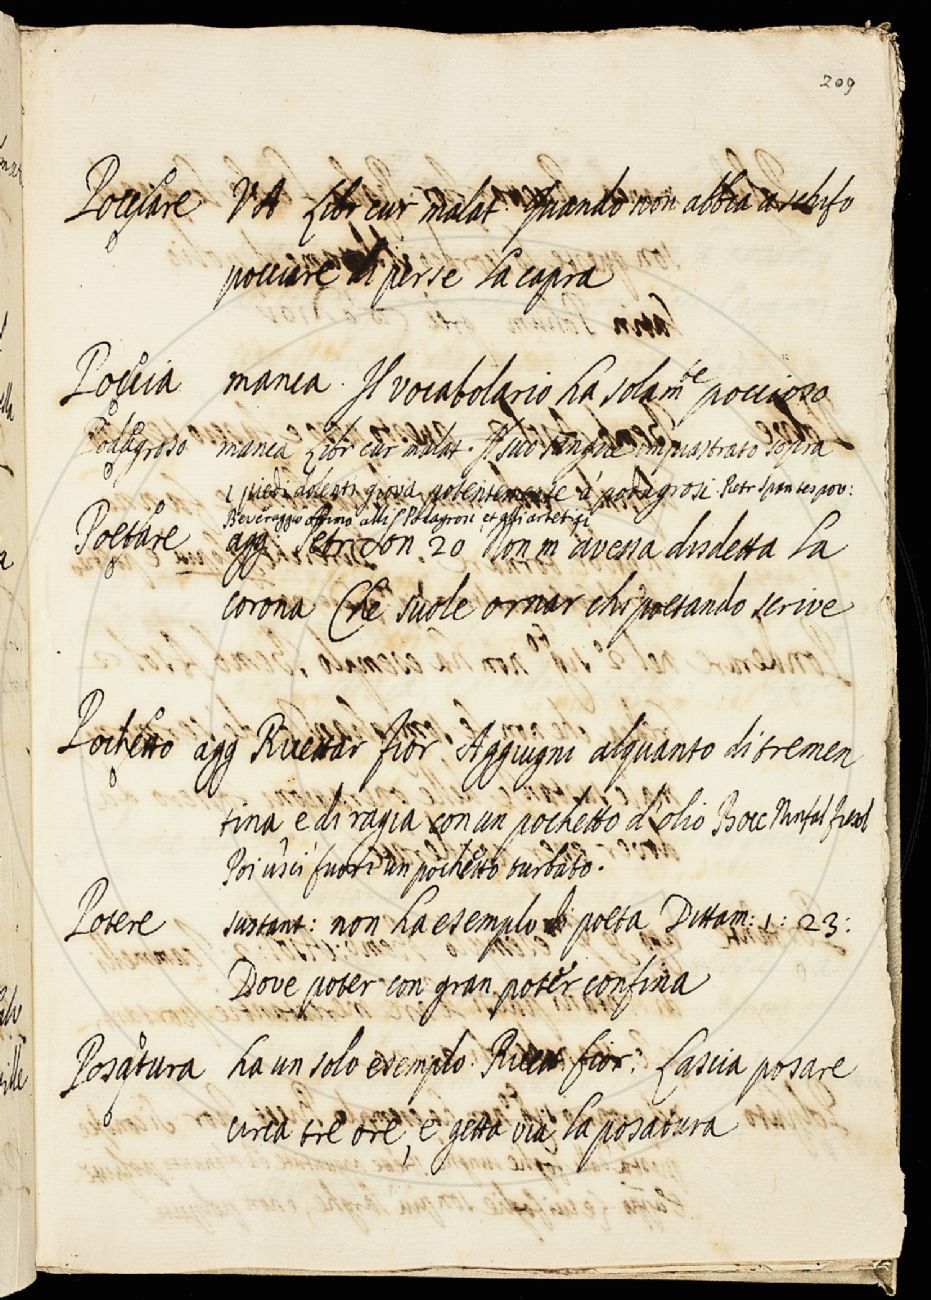 209
Pocciare VA Libr cur malat. Quando non abbia a schifo
pocciare di per se la capra
Poccia manca. Il vocabolario ha solam.te poccioso
Podagroso manca Libr cur malat. Il suo sangue impiastrato sopra
i piedi dolenti giova potentemente a' podagrosi Petr Span tes pov:
Beveraggio ottimo alli Podagrosi, et agli artetici
Poetare agg. Petr Son 20 Non m'avessa disdetta la
corona Che suole ornar chi poetando scrive
Pochetto agg Ricettar fior Aggiugni alquanto di tremen
tina e di ragia con un pochetto d'olio Bocc Ninfal fiesol
Poi uscì fuori un pochetto turbato.
Potere sustant: non ha esemplo di poeta Dittam: 1: 23:
Dove poter con gran poter confina
Posatura ha un solo esemplo. Ricett fior: Lascia posare
circa tre ore, e getta via la posatura